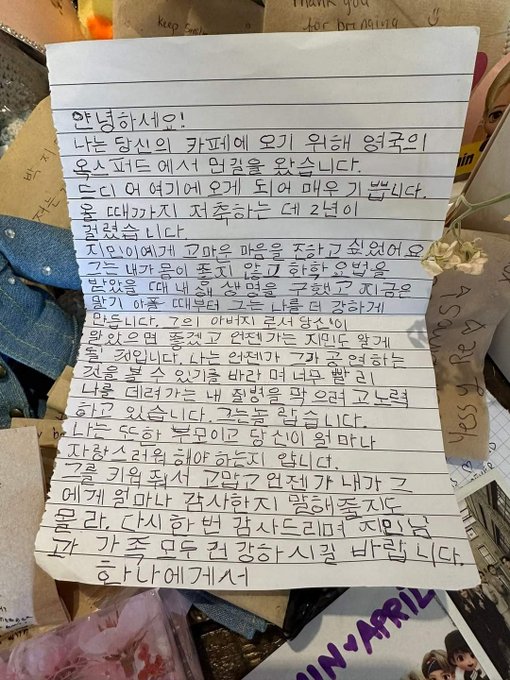 keep Smiling
Thank you
for bringing
안녕하세요!
나는 당신의 카페에 오기 위해 영국의
옥스퍼드에서 먼길을 왔습니다.
드디어 여기에 오게 되어 매우 기쁩니다.
올 때까지 저축하는 데 2년이
걸렸습니다.
지민이에게 고마운 마음을 전하고 싶었어요
그는 내가 몸이 좋지 않고 화학 요법을
받았을 때 내 생명을 구했고 지금은
말기 아플 때부터 그는 나를 더 강하게
만듭니다. 그의 아버지로서 당신이
알았으면 좋겠고 언젠가는 지민도 알게
될 것입니다. 나는 언젠가 그가 공연하는
것을 볼 수 있기를 바라며 너무 빨리
나를 데려가는 내 질병을 막으려고 노력
하고 있습니다. 그는 놀랍습니다.
나는 또한 부모이고 당신이 얼마나
자랑스러워해야 하는지 압니다.
그를 키워줘서 고맙고 언젠가 내가 그
에게 얼마나 감사한지 말해줄지도
몰라. 다시 한 번 감사드리며 지민님
과 가족 모두 건강하시길 바랍니다.
하나에게서